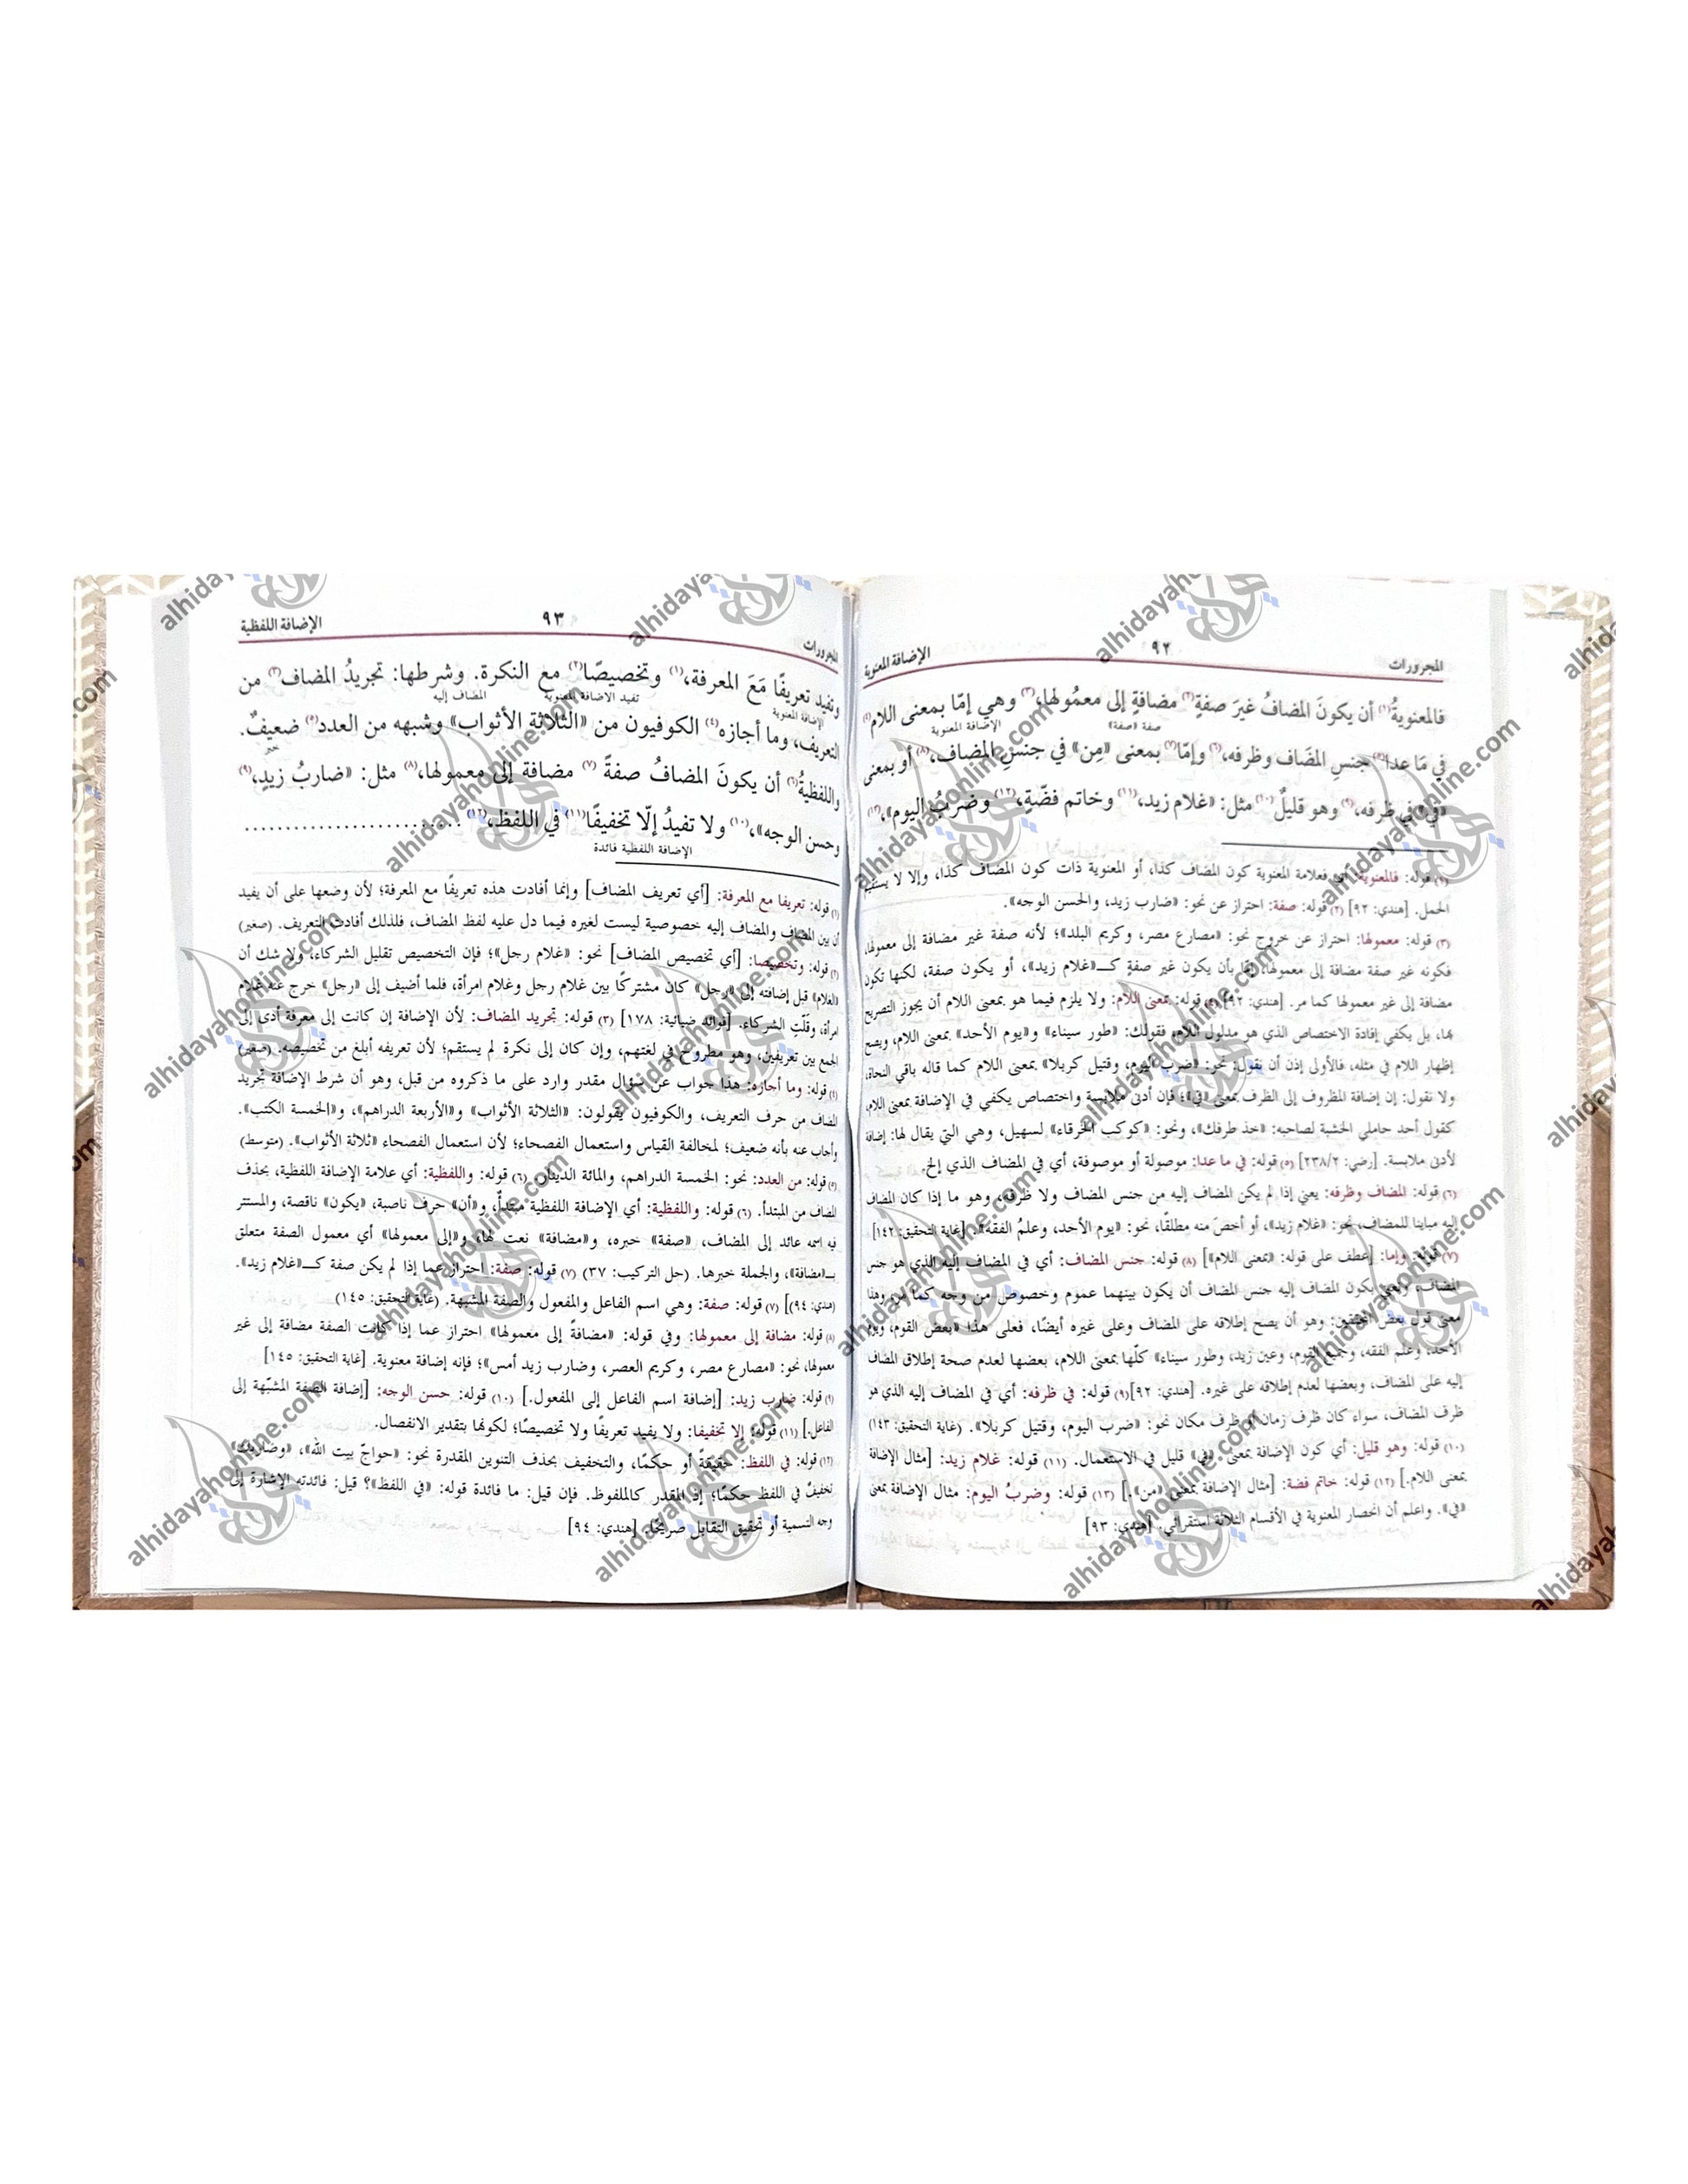 المجرورات ٩٢ الإضافة المعنوية
فالمعنويةُ(١) أن يكونَ المضافُ غيرَ صفةٍ(٢) مضافةٍ إلى معمُولها،(٣) وهي إمّا بمعنى اللام(٤)
صفة «صفة» الإضافة المعنوية
في مَا عدا(٥) جنسِ المضَاف وظرفه،(٦) وإمّا(٧) بمعنى «مِن» في جنسِ المضاف،(٨) أو بمعنى
«في» في ظرفه،(٩) وهو قليلٌ(١٠) مثل: «غلام زيد،(١١) وخاتم فضّةٍ،(١٢) وضربُ اليوم»،(١٣)
(١) قوله: فالمعنوية: أي فعلامة المعنوية كون المضاف كذا، أو المعنوية ذات كون المضاف كذا، وإلا لا يستقيم
الحمل. [هندي: ٩٢] (٢) قوله: صفة: احتراز عن نحو: «ضارب زيد، والحسن الوجه».
(٣) قوله: معمولها: احتراز عن خروج نحو: «مصارع مصر، وكريم البلد»؛ لأنه صفة غير مضافة إلى معمولها،
فكونه غير صفة مضافة إلى معمولها، إمّا بأن يكون غير صفةٍ كـ«غلام زيد»، أو يكون صفة، لكنها تكون
مضافة إلى غير معمولها كما مر. [هندي: ٩٢] (٤) قوله: بمعنى اللام: ولا يلزم فيما هو بمعنى اللام أن يجوز التصريح
بها، بل يكفي إفادة الاختصاص الذي هو مدلول اللام، فقولك: «طور سيناء» و«يوم الأحد» بمعنى اللام، ويصح
إظهار اللام في مثله، فالأولى إذن أن نقول: نحو: «ضرب اليوم، وقتيل كربلا» بمعنى اللام كما قاله باقي النحاة،
ولا نقول: إن إضافة المظروف إلى الظرف بمعنى «في»؛ فإن أدنى ملابسة واختصاص يكفي في الإضافة بمعنى اللام،
كقول أحد حاملي الخشبة لصاحبه: «خذ طرفك»، ونحو: «كوكب الخرقاء» لسهيل، وهي التي يقال لها: إضافة
لأدنى ملابسة. [رضي: ٢٣٨/٢] (٥) قوله: في ما عدا: موصولة أو موصوفة، أي في المضاف الذي إلخ.
(٦) قوله: المضاف وظرفه: يعني إذا لم يكن المضاف إليه من جنس المضاف ولا ظرفه، وهو ما إذا كان المضاف
إليه مباينا للمضاف، نحو: «غلام زيد»، أو أخصّ منه مطلقًا، نحو: «يوم الأحد، وعلمُ الفقه». [غاية التحقيق: ١٤٢]
(٧) قوله: وإما: [عطف على قوله: «بمعنى اللام»] (٨) قوله: جنس المضاف: أي في المضاف إليه الذي هو جنس
المضاف، ويعني بكون المضاف إليه جنس المضاف أن يكون بينهما عموم وخصوص من وجه كما مر، وهذا
معنى قول بعض المحققين: وهو أن يصح إطلاقه على المضاف وعلى غيره أيضًا، فعلى هذا «بعض القوم، ويوم
الأحد، وعلم الفقه، وجميع القوم، وعين زيد، وطور سيناء» كلّها بمعنى اللام، بعضها لعدم صحة إطلاق المضاف
إليه على المضاف، وبعضها لعدم إطلاقه على غيره. [هندي: ٩٢] (٩) قوله: في ظرفه: أي في المضاف إليه الذي هو
ظرف المضاف، سواء كان ظرف زمان أو ظرف مكان نحو: «ضرب اليوم، وقتيل كربلا». (غاية التحقيق: ١٤٣)
(١٠) قوله: وهو قليل: أي كون الإضافة بمعنى «في» قليل في الاستعمال. (١١) قوله: غلام زيد: [مثال الإضافة
بمعنى اللام.] (١٢) قوله: خاتم فضة: [مثال الإضافة بمعنى «من».] (١٣) قوله: وضربُ اليوم: مثال الإضافة بمعنى
«في». واعلم أن انحصار المعنوية في الأقسام الثلاثة استقرائي. [هندي: ٩٣]
المجرورات ٩٣ الإضافة اللفظية
وتفيد تعريفًا مَعَ المعرفة،(١) وتخصيصًا(٢) مع النكرة. وشرطها: تجريدُ المضاف(٣) من
الإضافة المعنوية تفيد الاضافة المعنوية المضاف إليه
التعريف، وما أجازه(٤) الكوفيون من «الثلاثة الأثواب» وشبهه من العدد(٥) ضعيفٌ.
خبر
واللفظيةُ(٦) أن يكونَ المضافُ صفةً(٧) مضافة إلى معمولها،(٨) مثل: «ضاربُ زيدٍ،(٩)
وحسن الوجه»،(١٠) ولا تفيدُ إلّا تخفيفًا(١١) في اللفظ،(١٢) ...........................
الإضافة اللفظية فائدة
(١) قوله: تعريفا مع المعرفة: [أي تعريف المضاف] وإنما أفادت هذه تعريفًا مع المعرفة؛ لأن وضعها على أن يفيد
أن بين المضاف والمضاف إليه خصوصية ليست لغيره فيما دل عليه لفظ المضاف، فلذلك أفادت التعريف. (صغير)
(٢) قوله: وتخصيصا: [أي تخصيص المضاف] نحو: «غلام رجل»؛ فإن التخصيص تقليل الشركاء، ولا شك أن
«الغلام» قبل إضافته إلى «رجل» كان مشتركًا بين غلام رجل وغلام امرأة، فلما أضيف إلى «رجل» خرج عنه غلام
امرأة، وقلّتِ الشركاء. [فوائد ضيائية: ١٧٨] (٣) قوله: تجريد المضاف: لأن الإضافة إن كانت إلى معرفة أدى إلى
الجمع بين تعريفين، وهو مطروح في لغتهم، وإن كان إلى نكرة لم يستقم؛ لأن تعريفه أبلغ من تخصيصه. (صغير)
(٤) قوله: وما أجازه: هذا جواب عن سؤال مقدر وارد على ما ذكروه من قبل، وهو أن شرط الإضافة تجريد
المضاف من حرف التعريف، والكوفيون يقولون: «الثلاثة الأثواب» و«الأربعة الدراهم»، و«الخمسة الكتب».
وأجاب عنه بأنه ضعيف؛ لمخالفة القياس واستعمال الفصحاء؛ لأن استعمال الفصحاء «ثلاثة الأثواب». (متوسط)
(٥) قوله: من العدد: نحو: الخمسة الدراهم، والمائة الدينار. (٦) قوله: واللفظية: أي علامة الإضافة اللفظية، بحذف
المضاف من المبتدأ. (٦) قوله: واللفظية: أي الإضافة اللفظية مبتدأ، و«أن» حرف ناصبة، «يكون» ناقصة، والمستتر
فيه اسمه عائد إلى المضاف، «صفة» خبره، و«مضافة» نعت لها، و«إلى معمولها» أي معمول الصفة متعلق
بـ«مضافة»، والجملة خبرها. (حل التركيب: ٣٧) (٧) قوله: صفة: احتراز عما إذا لم يكن صفة كـ«غلام زيد».
(هندي: ٩٤)] (٧) قوله: صفة: وهي اسم الفاعل والمفعول والصفة المشبهة. (غاية التحقيق: ١٤٥)
(٨) قوله: مضافة إلى معمولها: وفي قوله: «مضافةً إلى معمولها» احتراز عما إذا كانت الصفة مضافة إلى غير
معمولها، نحو: «مصارع مصر، وكريم العصر، وضارب زيد أمس»؛ فإنه إضافة معنوية. [غاية التحقيق: ١٤٥]
(٩) قوله: ضارب زيد: [إضافة اسم الفاعل إلى المفعول.] (١٠) قوله: حسن الوجه: [إضافة الصفة المشبّهة إلى
الفاعل.] (١١) قوله: إلا تخفيفا: ولا يفيد تعريفًا ولا تخصيصًا؛ لكونها بتقدير الانفصال.
(١٢) قوله: في اللفظ: حقيقةً أو حكمًا، والتخفيف بحذف التنوين المقدرة نحو: «حواجّ بيت الله»، «وضاربك»
تخفيفٌ في اللفظ حكمًا؛ إذ المقدر كالملفوظ. فإن قيل: ما فائدة قوله: «في اللفظ»؟ قيل: فائدته الإشارة إلى
وجه التسمية أو تحقيق التقابل صريحًا. [هندي: ٩٤]
alhidayahonline.com